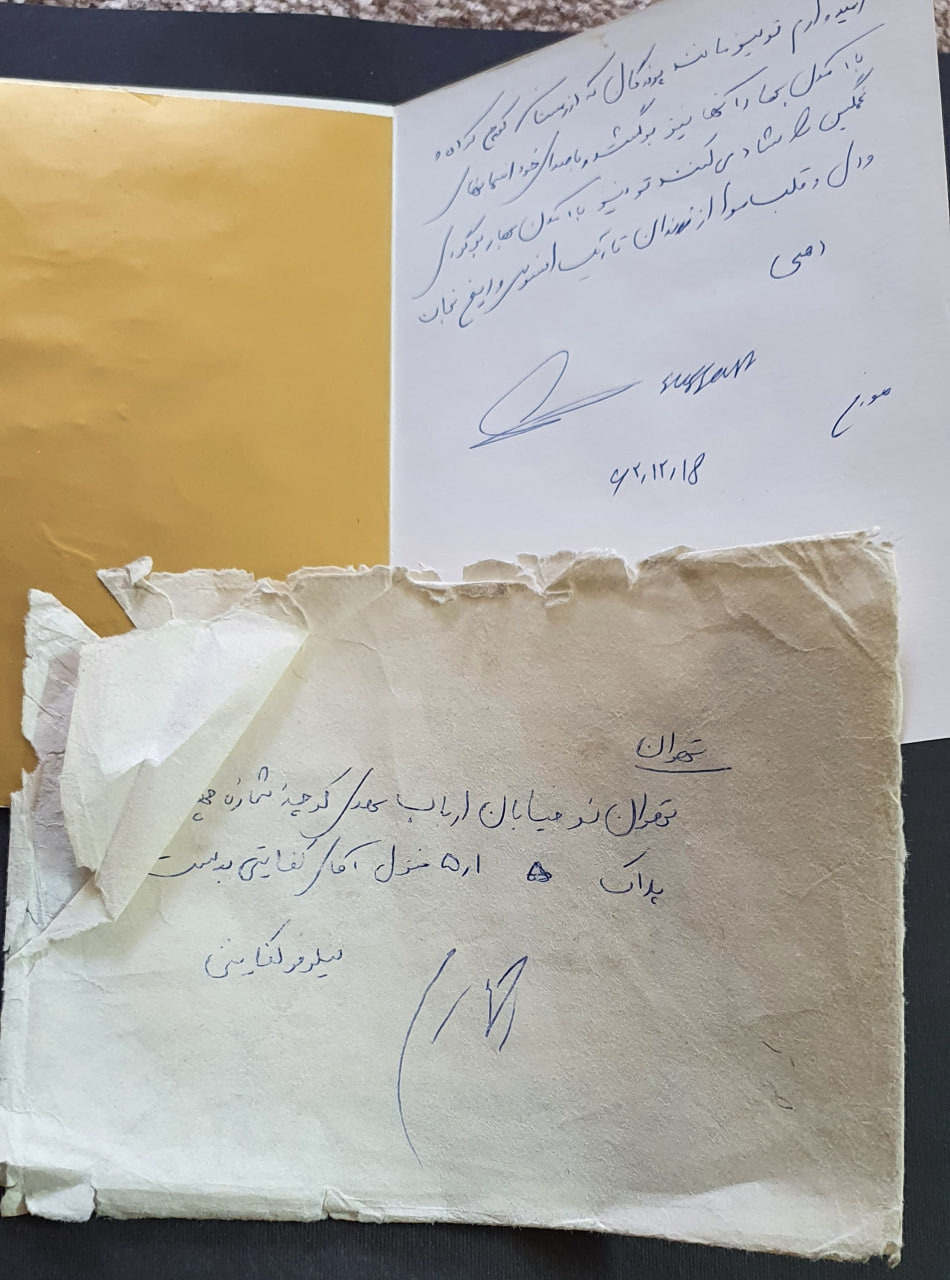 امیدوارم تو نیز مانند پرندگان که از زمستان کوچ کرده و
با آمدن بهار آنها نیز برگشته و با صدای خود آسمانهای
غمگین را شاد می‌کنند تو نیز با آمدن بهار برگردی
و دل و قلب مرا از زندان تاریک افسوس و اینغ نجات
دهی
مورخ
۶۲،۱۲،۱۸
تهران
تهران نو خیابان ارباب مهدی کوچه شماره
پلاک ۵ منزل آقای کفایتی بدست
نیلوفر کفایتی